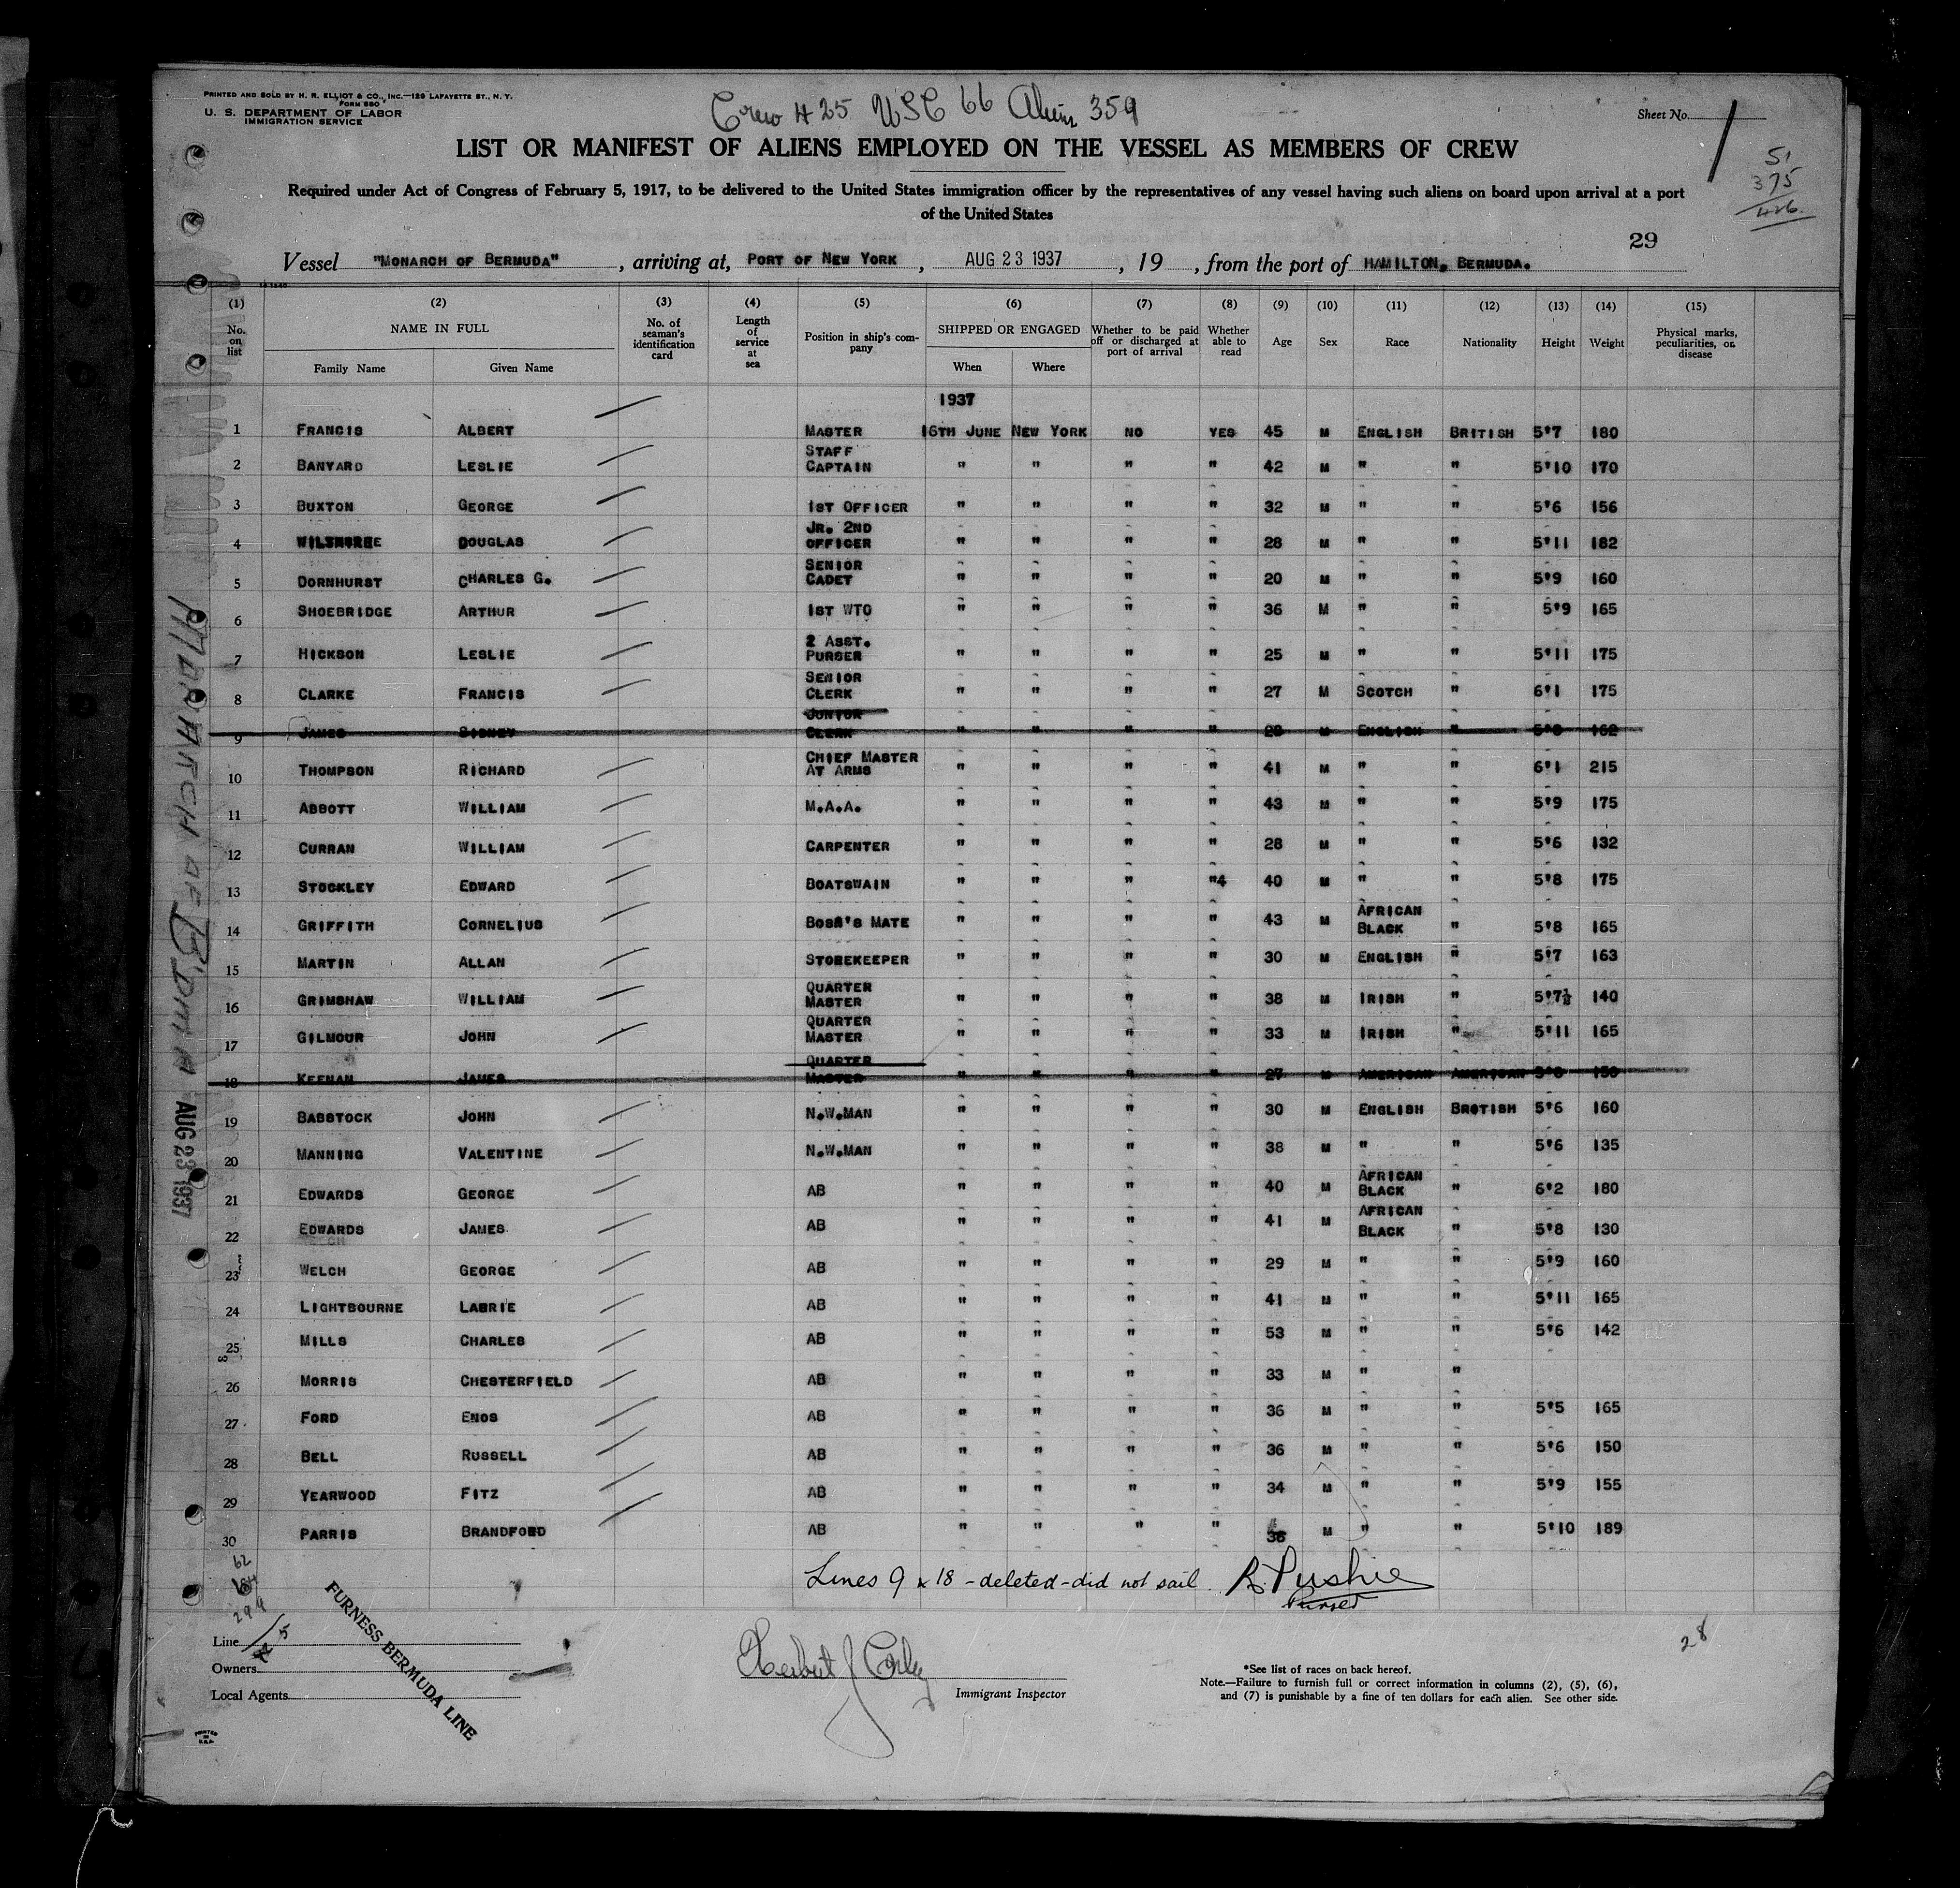 PRINTED AND SOLD BY H. R. ELLIOT & CO., INC.—129 LAFAYETTE ST., N. Y.
FORM 680
U. S. DEPARTMENT OF LABOR
IMMIGRATION SERVICE
Crew 425 USC 66 Alien 359
Sheet No. 1
LIST OR MANIFEST OF ALIENS EMPLOYED ON THE VESSEL AS MEMBERS OF CREW
51
375
426
Required under Act of Congress of February 5, 1917, to be delivered to the United States immigration officer by the representatives of any vessel having such aliens on board upon arrival at a port
of the United States
29
Vessel "MONARCH OF BERMUDA", arriving at, PORT OF NEW YORK, AUG 23 1937, 19, from the port of HAMILTON, BERMUDA.
(1) (2) (3) (4) (5) (6) (7) (8) (9) (10) (11) (12) (13) (14) (15)
No. on list NAME IN FULL No. of seaman's identification card Length of service at sea Position in ship's company SHIPPED OR ENGAGED Whether to be paid off or discharged at port of arrival Whether able to read Age Sex Race Nationality Height Weight Physical marks, peculiarities, or disease
Family Name Given Name When Where
1937
1 FRANCIS ALBERT MASTER 16TH JUNE NEW YORK NO YES 45 M ENGLISH BRITISH 5'7 180
2 BANYARD LESLIE STAFF CAPTAIN " " " " 42 M " " 5'10 170
3 BUXTON GEORGE 1ST OFFICER " " " " 32 M " " 5'6 156
4 DOUGLAS JR. 2ND OFFICER " " " " 28 M " " 5'11 182
5 DORNHURST CHARLES G. SENIOR CADET " " " " 20 M " " 5'9 160
6 SHOEBRIDGE ARTHUR 1ST WTO " " " " 36 M " " 5'9 165
7 HICKSON LESLIE 2 ASST. PURSER " " " " 25 M " " 5'11 175
8 CLARKE FRANCIS SENIOR CLERK " " " " 27 M SCOTCH " 6'1 175
9 JAMES SIDNEY JUNIOR CLERK " " " " M ENGLISH " 162
10 THOMPSON RICHARD CHIEF MASTER AT ARMS " " " " 41 M " " 6'1 215
11 ABBOTT WILLIAM M.A.A. " " " " 43 M " " 5'9 175
12 CURRAN WILLIAM CARPENTER " " " " 28 M " " 5'6 132
13 STOCKLEY EDWARD BOATSWAIN " " " "4 40 M " " 5'8 175
14 GRIFFITH CORNELIUS BOSN'S MATE " " " " 43 M AFRICAN BLACK " 5'8 165
15 MARTIN ALLAN STOREKEEPER " " " " 30 M ENGLISH " 5'7 163
16 GRIMSHAW WILLIAM QUARTER MASTER " " " " 38 M IRISH " 5'7½ 140
17 GILMOUR JOHN QUARTER MASTER " " " " 33 M IRISH " 5'11 165
18 KEENAN JAMES QUARTER MASTER " " " " 27 M AMERICAN AMERICAN 150
19 BABSTOCK JOHN N.W.MAN " " " " 30 M ENGLISH BRITISH 5'6 160
20 MANNING VALENTINE N.W.MAN " " " " 38 M " " 5'6 135
21 EDWARDS GEORGE AB " " " " 40 M AFRICAN BLACK " 6'2 180
22 EDWARDS JAMES AB " " " " 41 M AFRICAN BLACK " 5'8 130
23 WELCH GEORGE AB " " " " 29 M " " 5'9 160
24 LIGHTBOURNE LABRIE AB " " " " 41 M " " 5'11 165
25 MILLS CHARLES AB " " " " 53 M " " 5'6 142
26 MORRIS CHESTERFIELD AB " " " " 33 M " "
27 FORD ENOS AB " " " " 36 M " " 5'5 165
28 BELL RUSSELL AB " " " " 36 M " " 5'6 150
29 YEARWOOD FITZ AB " " " " 34 M " " 5'9 155
30 PARRIS BRANDFORD AB " " " " 36 M " " 5'10 189
Lines 9 & 18 - deleted - did not sail. R. Pushie
Purser
MONARCH OF B'DMA AUG 23 1937
62
299
5
28
Line
Owners
Local Agents
FURNESS BERMUDA LINE
Immigrant Inspector
*See list of races on back hereof.
Note.—Failure to furnish full or correct information in columns (2), (5), (6),
and (7) is punishable by a fine of ten dollars for each alien. See other side.
PRINTED
IN
U.S.A.